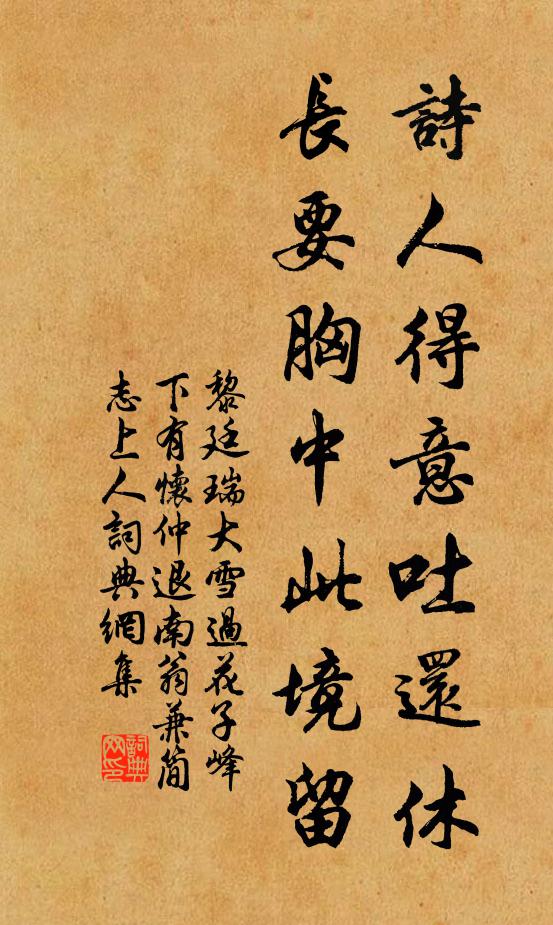 詩人得意吐還休
長要胸中此境留
黎廷瑞大雪過花子峰
下有懷仲退南翁兼簡
志上人詞典網集
詞典
网印